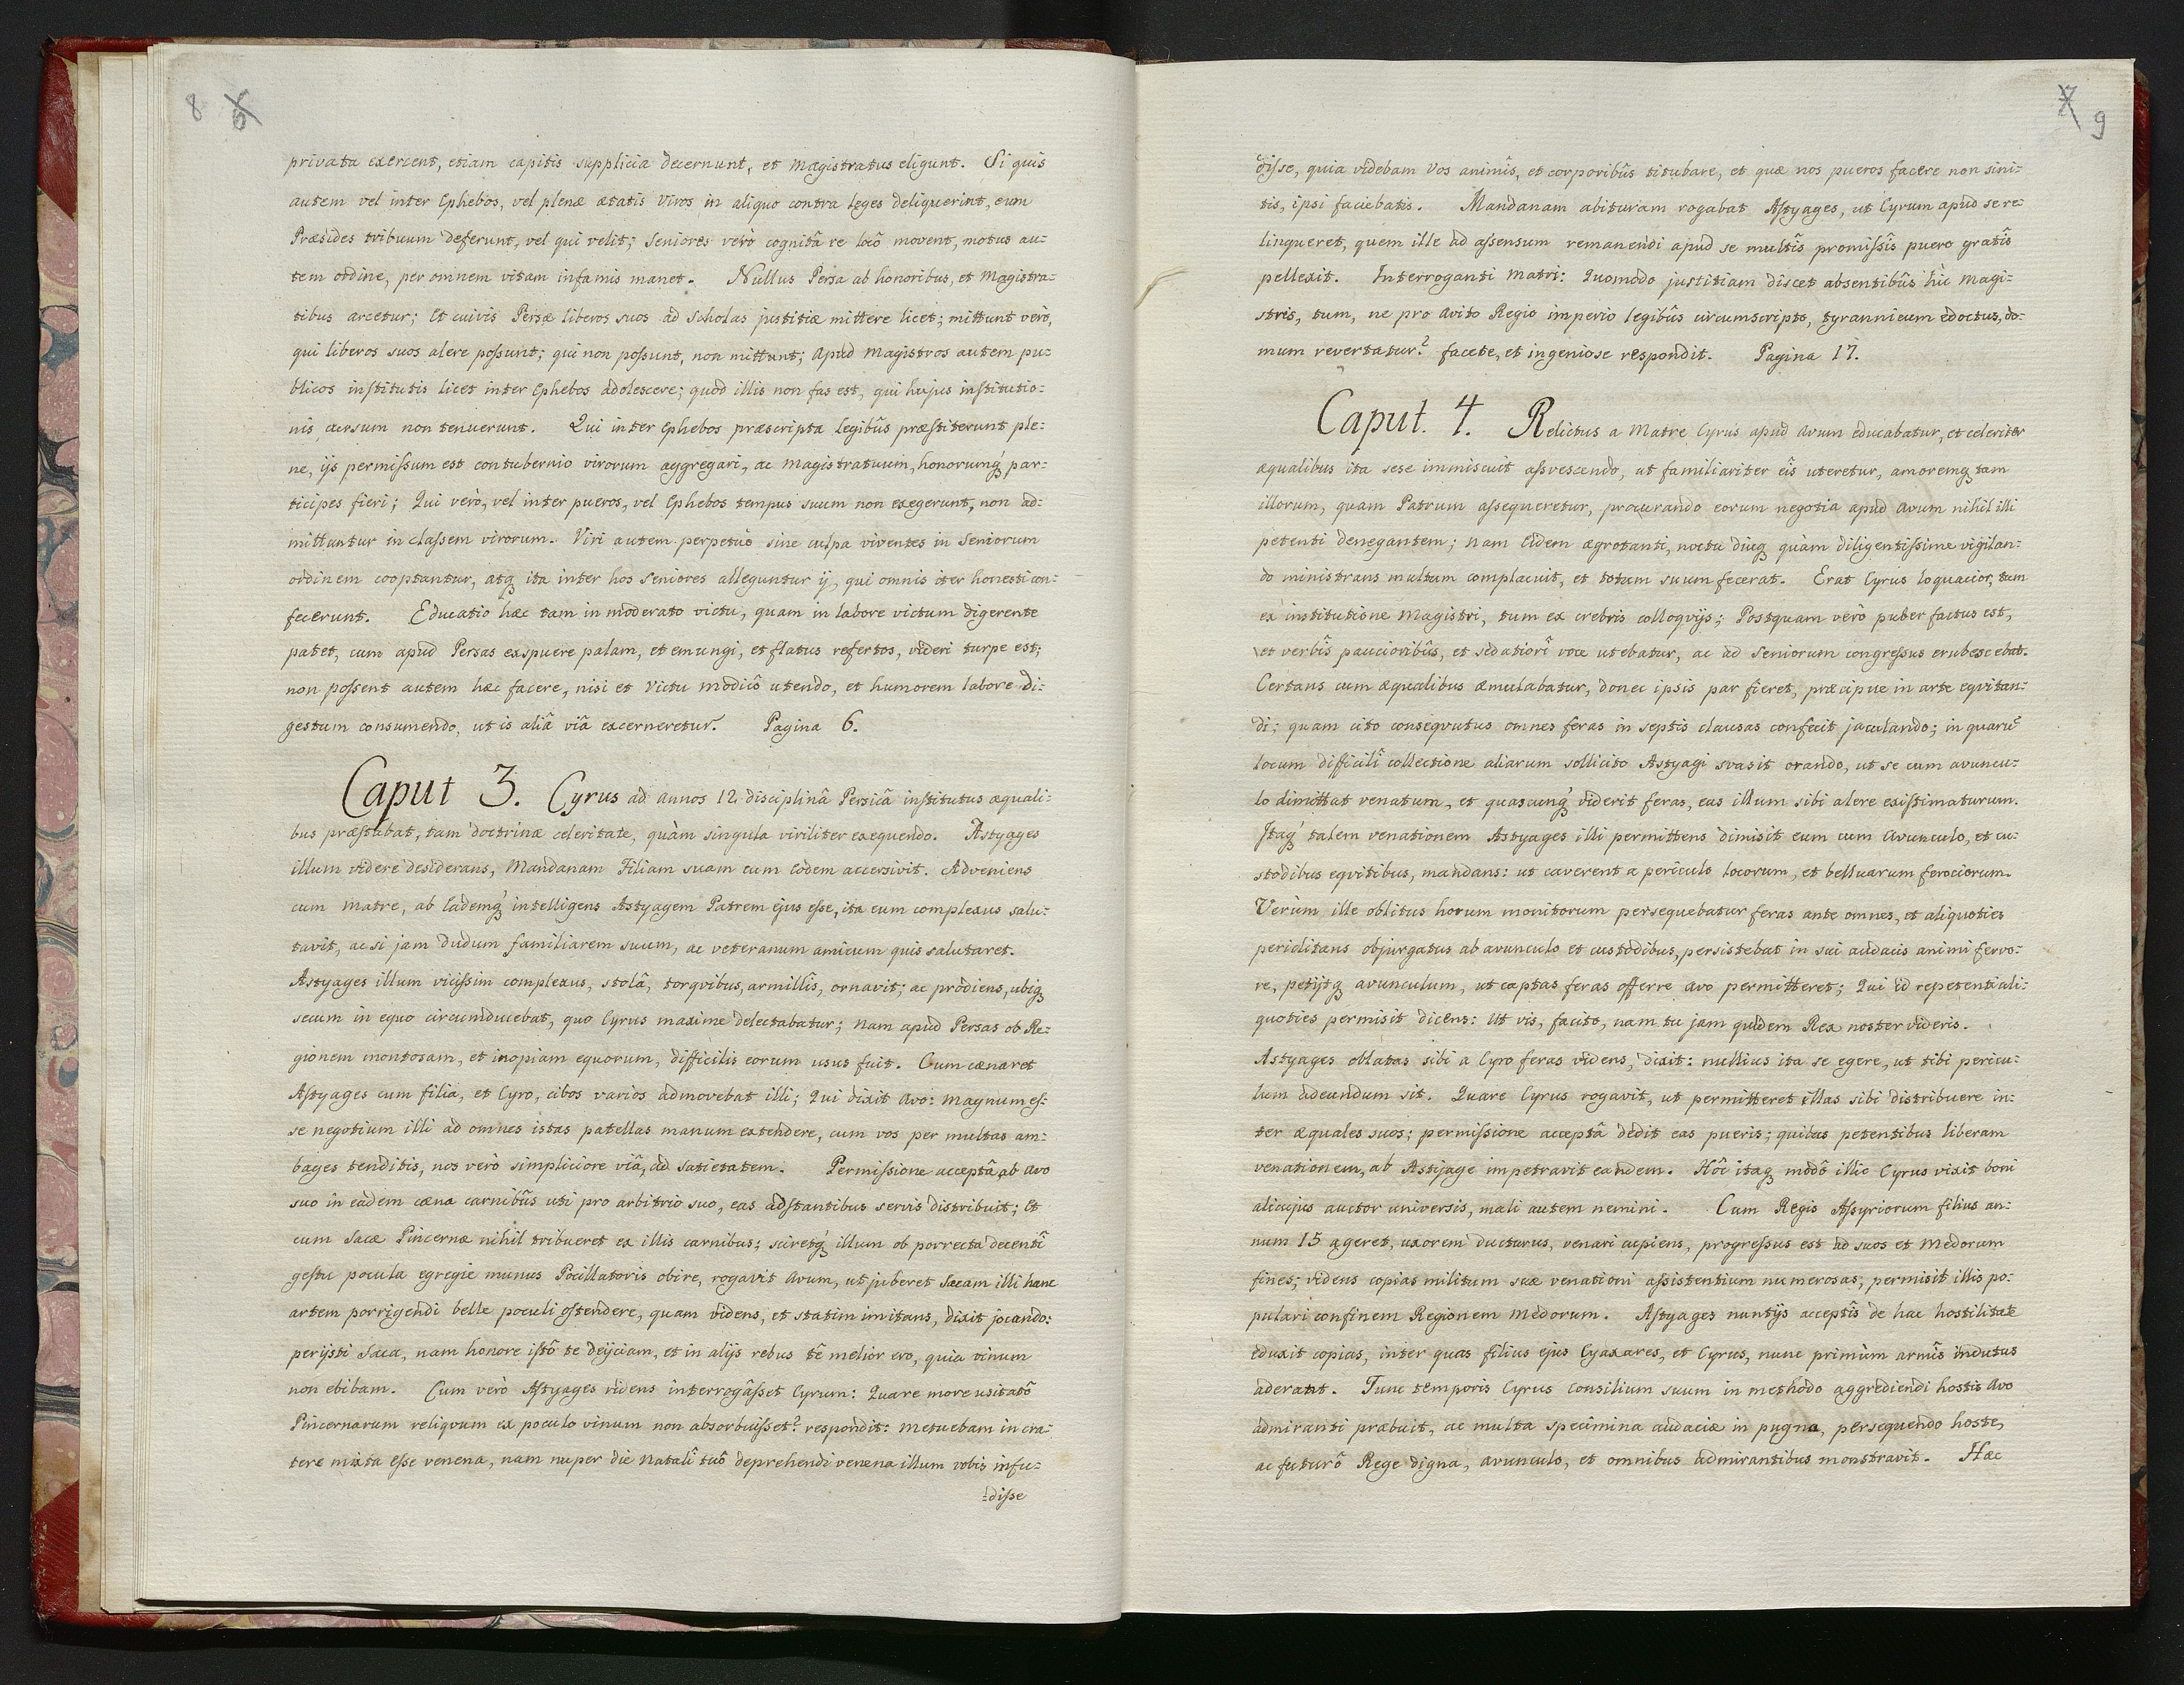 8 6
privata exercent, etiam capitis supplicia decernunt, et Magistratus eligunt. Si quis
autem vel inter Ephebos, vel plenæ ætatis Viros in aliquo contra leges deliquerint, eum
Præsides tribuum deferunt, vel qui velit; Seniores verò cognitâ re locô movent, motus au=
tem ordine, per omnem vitam infamis manet. Nullus Persa ab honoribus, et Magistra=
tibus arcetur; Et cuivis Persæ liberos suos ad Scholas justitiæ mittere licet; mittunt verò,
qui liberos suos alere poſsunt; qui non poſsunt, non mittunt; Apud Magistros autem pu=
blicos inſtitutis licet inter Ephebos adolescere; quod illis non fas est, qui hujus inſtitutio=
nis cursum non tenuerunt. Qui inter Ephebos præscripta legibûs præſtiterunt ple=
ne, ijs permiſsum est contubernio virorum aggregari, ac Magistratuum, honorumq́ par=
ticipes fieri; Qui verò, vel inter pueros, vel Ephebos tempus suum non exegerunt, non ad=
mittuntur in claſsem virorum. Viri autem perpetuò sine culpa viventes in Seniorum
ordinem cooptantur, atq́ ita inter hos Seniores alleguntur ij, qui omnis iter honesti con=
fecerunt. Educatio hæc tam in moderato victu, quam in labore victum digerente
patet, cum apud Persas exspuere palam, et emungi, et flatus refertos, videri turpe est;
non poſsent autem hæc facere, nisi et Victu modicô utendo, et humorem labore di=
gestum consumendo, ut is aliâ viâ excerneretur. Pagina 6.
Caput 3. Cyrus ad annos 12. disciplinâ Persicâ inſtitutus æquali=
bus præſtabat, tam doctrinæ celeritate, quàm singula viriliter exequendo. Astyages
illum videre desiderans, Mandanam Filiam suam cum Eodem accersivit. Adveniens
cum Matre, ab Eademq́ intelligens Astyagem Patrem ejus eſse, ita eum complexus salu=
tavit, ac si jam dudum familiarem suum, ac veteranum amicum quis salutaret.
Astyages illum viciſsim complexus, stolâ, torqvibus, armillîs, ornavit; ac prodiens, ubiq́
secum in equo circumducebat, quo Cyrus maxime delectabatur; Nam apud Persas ob Re=
gionem montosam, et inopiam equorum, difficilis eorum usus fuit. Cum cænaret
Aſtyages cum filia, et Cyro, cibos varios admovebat illi; Qui dixit Avo: Magnum eſ=
se negotium illi ad omnes istas patellas manum extendere, cum vos per multas am=
bages tenditis, nos verò simpliciore viâ, ad satietatem. Permiſsione acceptâ ab Avo
suo in eadem cæna carnibûs uti pro arbitrio suo, eas adſtantibus servis distribuit; Et
cum Sacæ Pincernæ nihil tribueret ex illis carnibus; sciretq́ illum ob porrecta decentî
geſtu pocula egregie munus Pocillatoris obire, rogavit Avum, ut juberet Sacam illi hanc
artem porrigendi belle poculi oſtendere, quam videns, et statim imitans, dixit jocando:
perijsti Saca, nam honore iſtô te dejiciam, et in alijs rebus tê melior ero, quia vinum
non ebibam. Cum verò Aſtyages videns interrogâſset Cyrum: Quare more usitatô
Pincernarum reliqvum ex poculo vinum non absorbuiſset? respondit: Metuebam in cra=
tere mixta eſse venena, nam nuper die Natalî tuô deprehendi venena illum vobis infu=
=diſse
7 9
diſse, quia videbam Vos animîs, et corporibûs titubare, et quæ nos pueros facere non sini=
tis, ipsi faciebatis. Mandanam abituram rogabat Aſtyages, ut Cyrum apud se re=
lingueret, quem ille ad aſsensum remanendi apud se multîs promiſsîs puero gratîs
pellexit. Interroganti Matri: Quomodo justitiam discet absentibûs hîc Magi=
strîs, tum, ne pro Avito Regio imperio legibûs circumscripto, tyrannicum edoctus, do=
mum revertatur? facete, et ingeniose respondit. Pagina 17.
Caput. 4. Relictus a Matre Cyrus apud Avum educabatur, et celeriter
æqualibus ita sese immiscuit aſsvescendo, ut familiariter eîs uteretur, amoremq́ tam
illorum, quam Patrum aſsequeretur, procurando eorum negotia apud Avum nihil illi
petenti denegantem; Nam Eidem ægrotanti, noctu diuq́ quàm diligentiſsime vigilan=
do ministrans multum complacuit, et totum suum fecerat. Erat Cyrus loquacior, tum
ex institutione Magistri, tum ex crebris colloqvijs; Postquam verò puber factus est,
et verbîs paucioribûs, et sedatiorî voce utebatur, ac ad Seniorum congreſsus erubescebat.
Certans cum æqualibus æmulabatur, donec ipsis par fieret, præcipue in arte eqvitan=
di; quam cito conseqvutus omnes feras in septis clausas confecit jaculando; in quarū
locum difficilî collectione aliarum sollicito Astyagi svasit orando, ut se cum avuncu=
lo dimittat venatum, et quascunq́ viderit feras, eas illum sibi alere exiſtimaturum.
Itaq́ talem venationem Astyages illi permittens dimisit eum cum Avunculo, et cu=
stodibus eqvitibus, mandans: ut caverent a periculo locorum, et belluarum ferociorum.
Verùm ille oblitus horum monitorum persequebatur feras ante omnes, et aliquoties
periclitans objurgatus ab avunculo et custodibus, persistebat in sui audacis animi fervo=
re, petijtq́ avunculum, ut captas feras offerre avo permitteret; Qui id repetenti ali=
quoties permisit dicens: Ut vis, facito, nam tu jam quidem Rex noster videris.
Astyages oblatas sibi a Cyro feras videns, dixit: nullius ita se egere, ut tibi pericu=
lum adeundum sit. Quare Cyrus rogavit, ut permitteret illas sibi distribuere in=
ter æquales suos; permiſsione acceptâ dedit eas pueris; quibus petentibus liberam
venationem, ab Astyage impetravit eandem. Hôc itaq́ modô illic Cyrus vixit boni
alicujus auctor universis, mali autem nemini. Cum Regis Aſsyriorum filius an=
num 15 ageret, uxorem ducturus, venari cupiens, progreſsus est ad suos et Medorum
fines; videns copias militum suæ venationi aſsistentium numerosas, permisit illis po=
pulari confinem Regionem Medorum. Aſtyages nuntijs acceptîs de hac hostilitate
eduxit copias, inter quas filius ejus Cyaxares, et Cyrus, nunc primùm armîs indutus
aderant. Tunc temporis Cyrus Consilium suum in methodo aggrediendi hostis Avo
admiranti præbuit, ac multa specimina audaciæ in pugna, persequendo hoste,
ac futurô Rege digna, avunculo, et omnibus admirantibus monstravit. Hæc